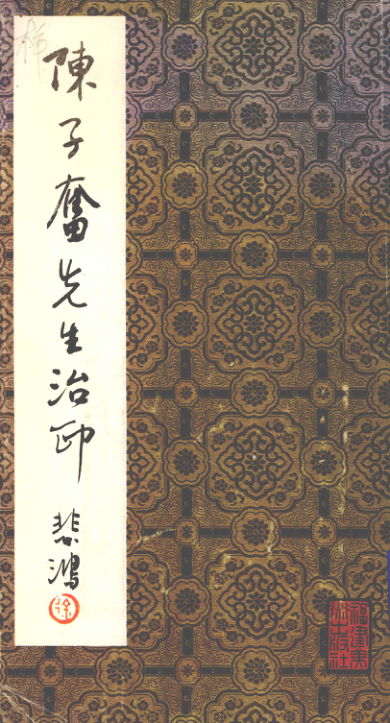 陳子奮先生治印
悲鴻
徐
福建美
术出版社
样